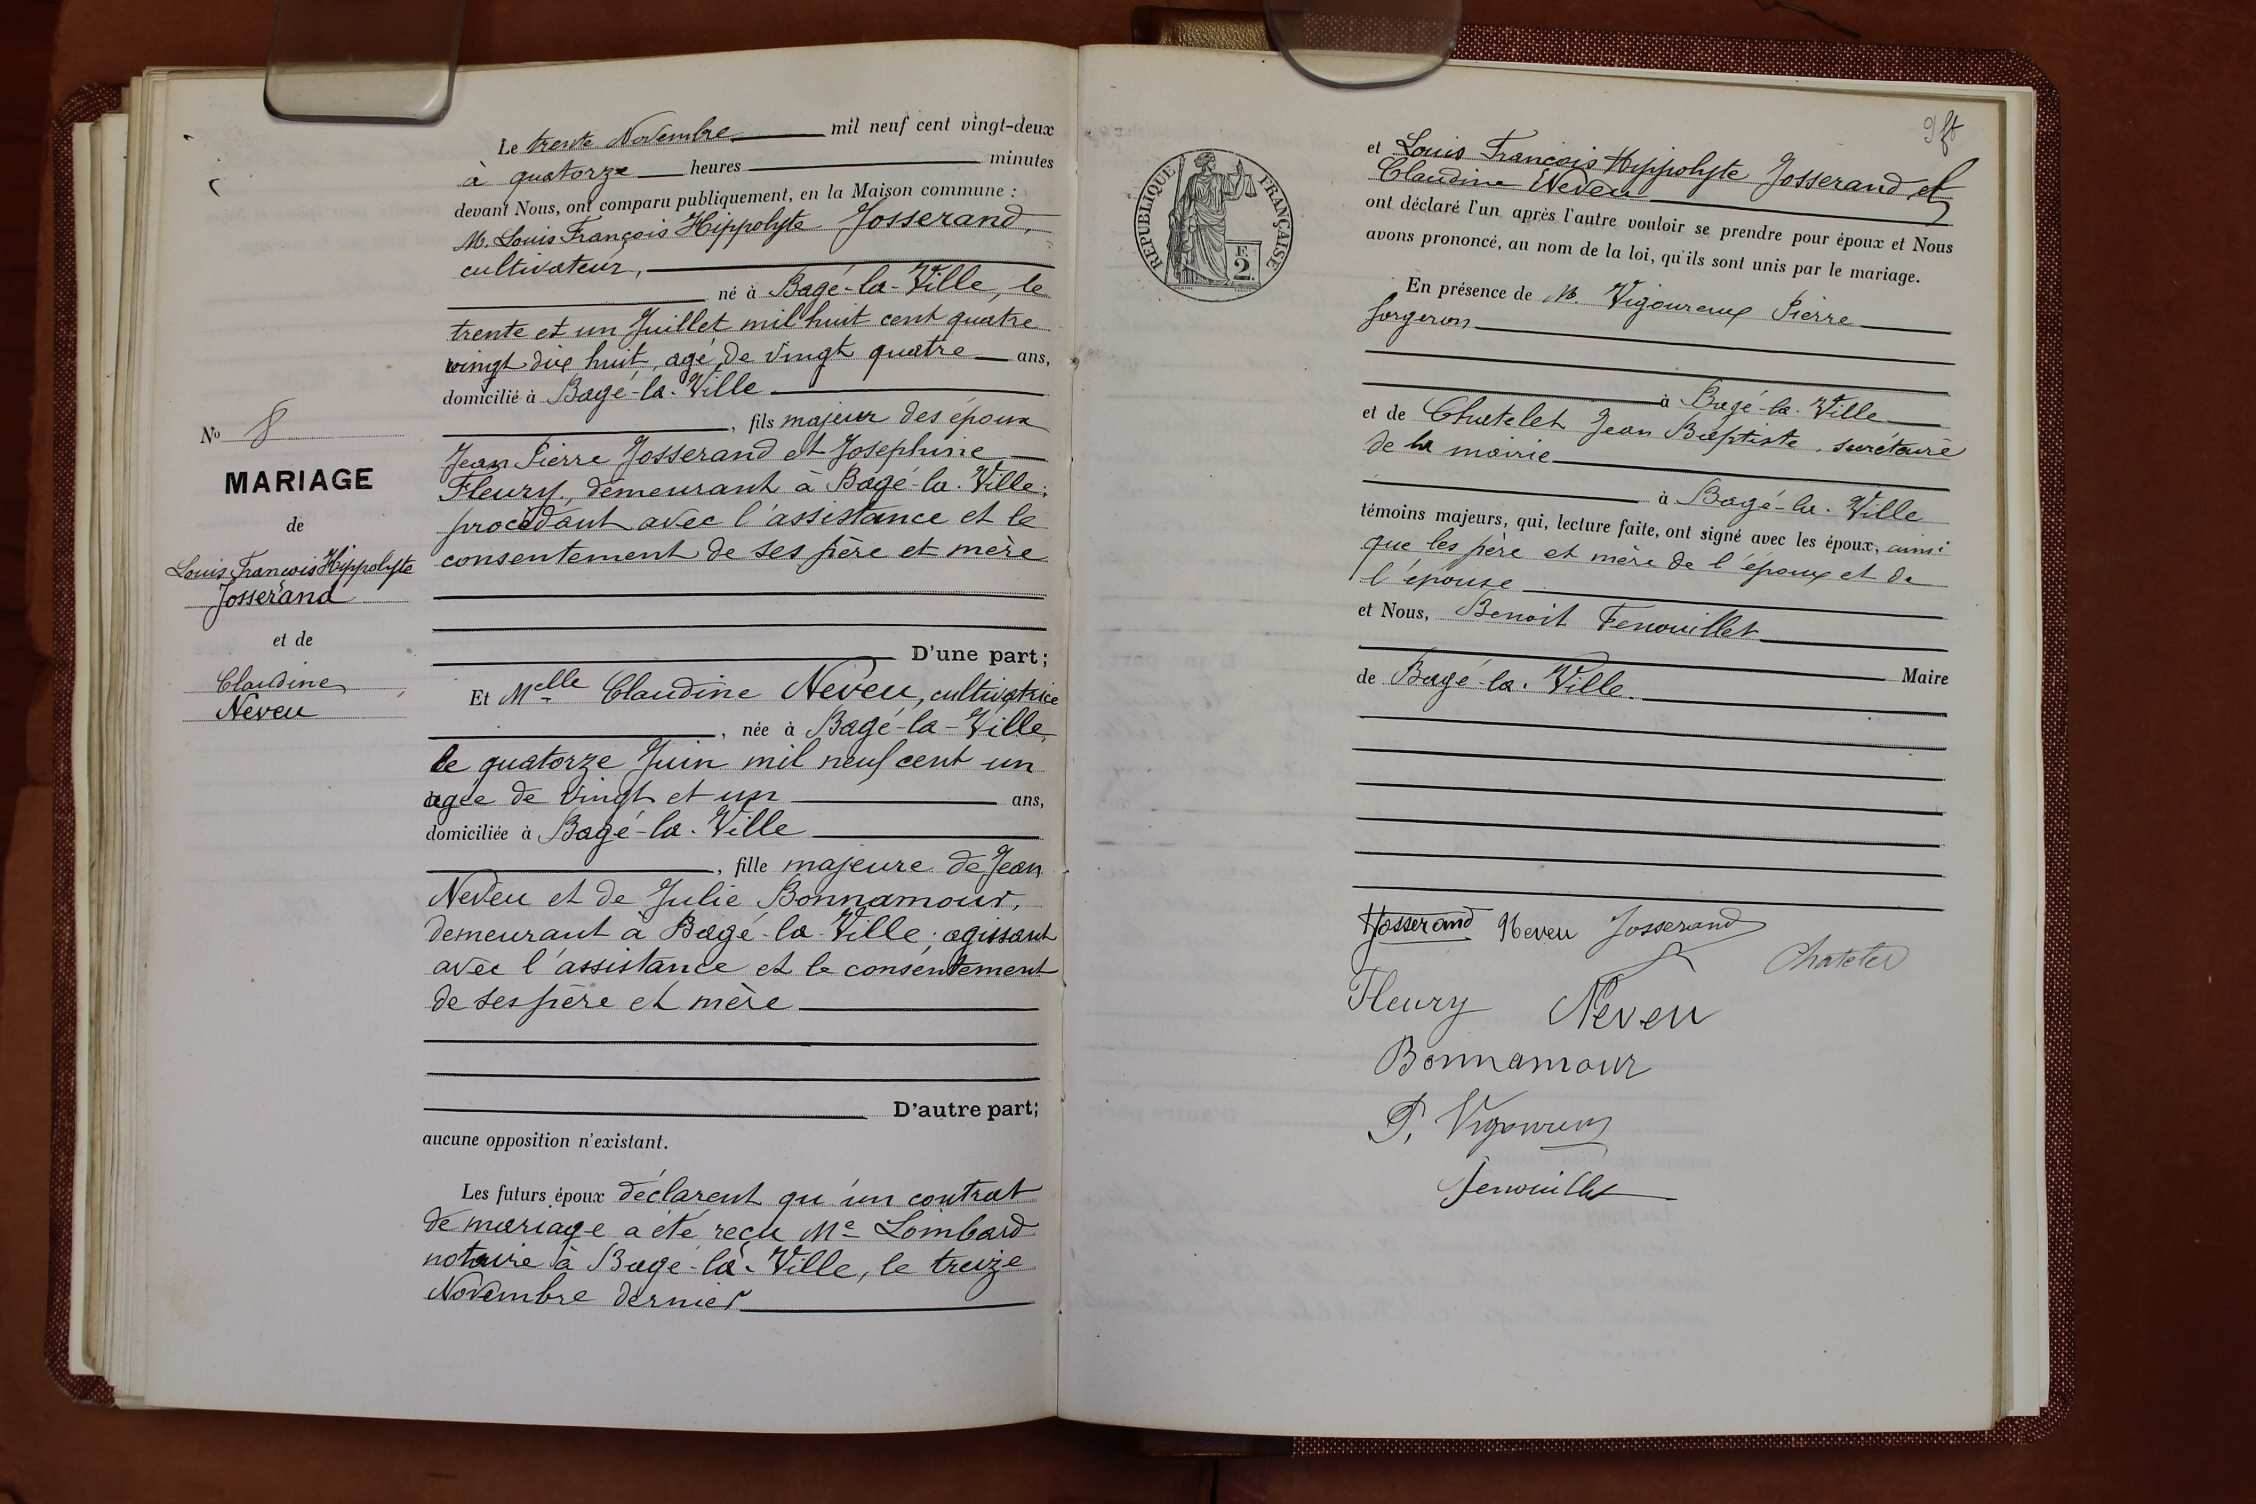 Le trente Novembre mil neuf cent vingt-deux
à quatorze heures minutes
devant Nous, ont comparu publiquement, en la Maison commune :
M. Louis François Hippolyte Josserand,
cultivateur,
né à Bagé-la-Ville, le
trente et un Juillet mil huit cent quatre
vingt dix huit, agé de vingt quatre ans,
domicilié à Bagé-la-Ville
, fils majeur des époux
Jean Pierre Josserand et Josephine
Fleury, demeurant à Bagé-la-Ville;
procédant avec l'assistance et le
consentement de ses père et mère
D'une part;
Et Melle Claudine Neveu, cultivatrice
, née à Bagé-la-Ville,
le quatorze Juin mil neuf cent un
agée de vingt et un ans,
domiciliée à Bagé-la-Ville
, fille majeure de Jean
Neveu et de Julie Bonnamour,
demeurant à Bagé-la-Ville; agissant
avec l'assistance et le consentement
de ses père et mère
D'autre part;
aucune opposition n'existant.
Les futurs époux déclarent qu'un contrat
de mariage a été reçu Me Lombard
notaire à Bagé-la-Ville, le treize
Novembre dernier
No 8
MARIAGE
de
Louis François Hippolyte
Josserand
et de
Claudine
Neveu
RÉPUBLIQUE FRANÇAISE
F.
2.
et Louis François Hippolyte Josserand et
Claudine Neveu
ont déclaré l'un après l'autre vouloir se prendre pour époux et Nous
avons prononcé, au nom de la loi, qu'ils sont unis par le mariage.
En présence de M. Vigoureux Pierre
forgeron
à Bagé-la-Ville
et de Chatelet Jean Baptiste, secrétaire
de la mairie
à Bagé-la-Ville
témoins majeurs, qui, lecture faite, ont signé avec les époux, ainsi
que les père et mère de l'époux et de
l'épouse
et Nous, Benoit Fenouillet
Maire
de Bagé-la-Ville.
Josserand Neveu Josserand
Chatelet
Fleury Neveu
Bonnamour
P. Vigoureux
Fenouillet